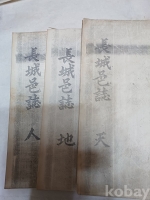 長城邑誌 天
長城邑誌 地
長城邑誌 人
kobay